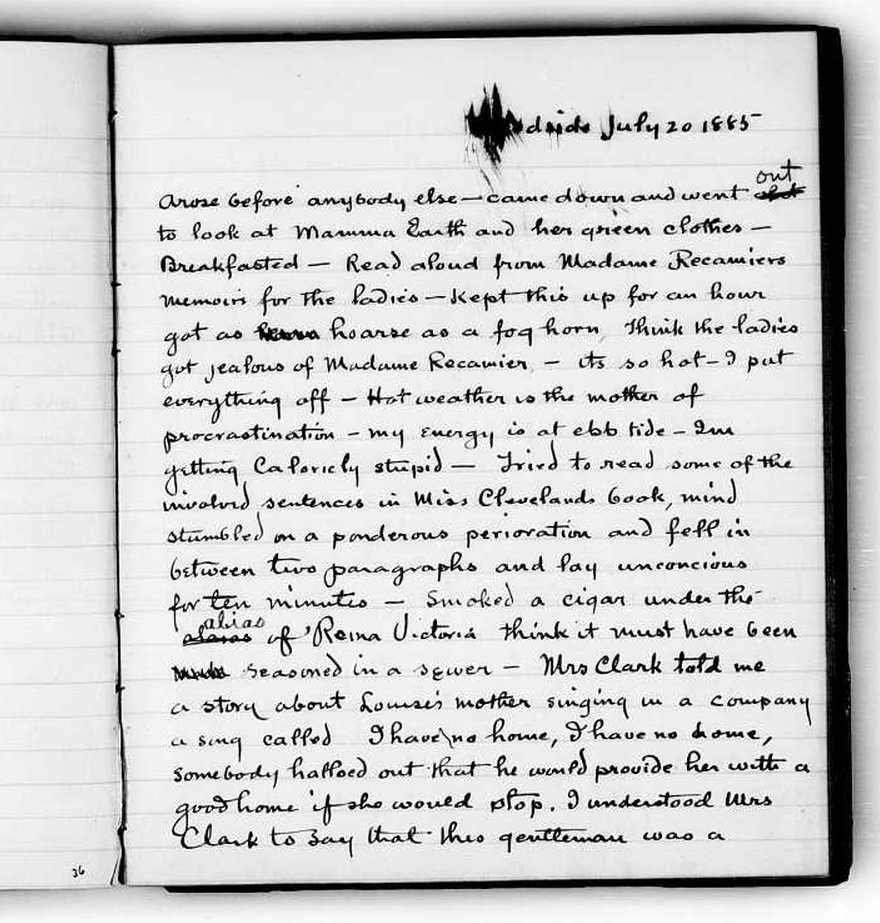 July 20 1885
out
Arose before anybody else — came down and went
to look at Mamma Earth and her green clothes —
Breakfasted — Read aloud from Madame Recamiers
memoirs for the ladies — Kept this up for an hour
got as hoarse as a fog horn, Think the ladies
got jealous of Madame Recamier, — its so hot — I put
everything off — Hot weather is the mother of
procrastination — my energy is at ebb tide — Im
getting Caloricly stupid — Tried to read some of the
involved sentences in Miss Clevelands book, mind
stumbled on a ponderous perioration and fell in
between two paragraphs and lay unconcious
for ten minutes — Smoked a cigar under the
alias
of 'Reina Victoria think it must have been
seasoned in a sewer — Mrs Clark told me
a story about Louise's mother singing in a company
a song called I have no home, I have no home,
somebody halloed out that he would provide her with a
good home if she would stop. I understood Mrs
Clark to say that this gentleman was a
36